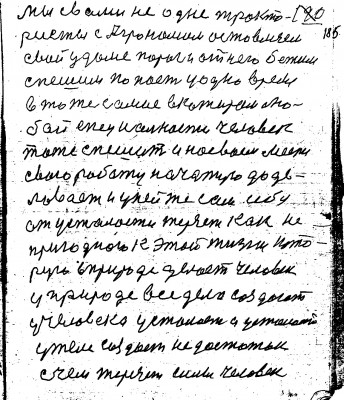 мы с вами не одне тракто- 180
ристы с Агрономам оставляем 186
свой у доме порог и от него бежим
спешим по полет у одно время
в то же самые в которам лю-
бай специалности человек
тоже спешит и на своем месте
свою работу начатую до де-
ловает и у ней же сам себя
от усталости теряет как не
пригоднаго к этой жизни кото-
рую в природе делает человек
у природе все дело создают
у человека усталает и усталост
у теле создает недостаток
с чем теряет силы человек